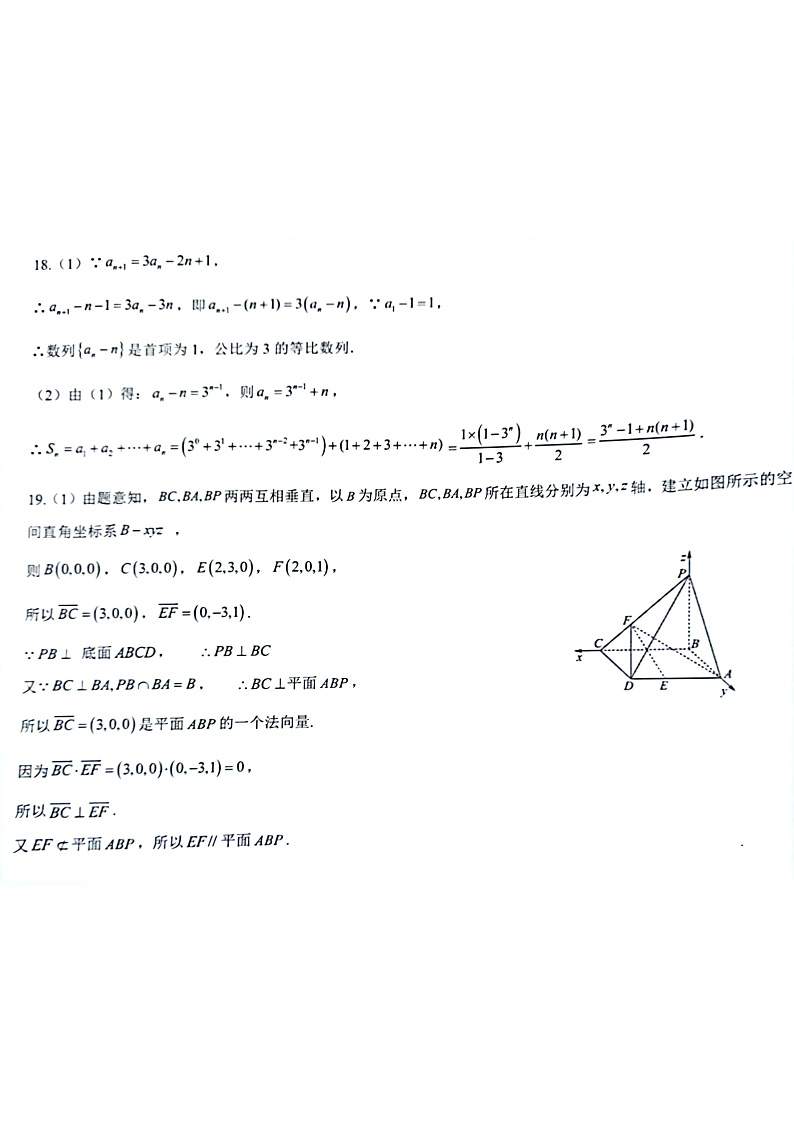 18.（1）∵ aₙ₊₁ = 3aₙ − 2n + 1，
∴ aₙ₊₁ − n − 1 = 3aₙ − 3n，即 aₙ₊₁ − (n+1) = 3(aₙ − n)，∵ a₁ − 1 = 1，
∴数列{aₙ − n}是首项为 1，公比为 3 的等比数列.
（2）由（1）得：aₙ − n = 3ⁿ⁻¹，则 aₙ = 3ⁿ⁻¹ + n，
∴ Sₙ = a₁ + a₂ + ⋯ + aₙ = (3⁰ + 3¹ + ⋯ + 3ⁿ⁻² + 3ⁿ⁻¹) + (1 + 2 + 3 + ⋯ + n) = 1×(1−3ⁿ)/(1−3) + n(n+1)/2 = (3ⁿ − 1 + n(n+1))/2.
19.（1）由题意知，BC,BA,BP 两两互相垂直，以 B 为原点，BC,BA,BP 所在直线分别为 x,y,z 轴，建立如图所示的空
间直角坐标系 B − xyz ，
则 B(0,0,0)，C(3,0,0)，E(2,3,0)，F(2,0,1)，
所以 B̅C̅ = (3,0,0)，E̅F̅ = (0,−3,1).
∵ PB ⊥ 底面 ABCD， ∴ PB ⊥ BC
又∵ BC ⊥ BA, PB ∩ BA = B， ∴ BC ⊥ 平面 ABP，
所以 B̅C̅ = (3,0,0) 是平面 ABP 的一个法向量.
因为 B̅C̅ · E̅F̅ = (3,0,0)·(0,−3,1) = 0，
所以 B̅C̅ ⊥ E̅F̅.
又 EF ⊄ 平面 ABP，所以 EF // 平面 ABP.
z
P
F
C
B
x
D
E
A
y